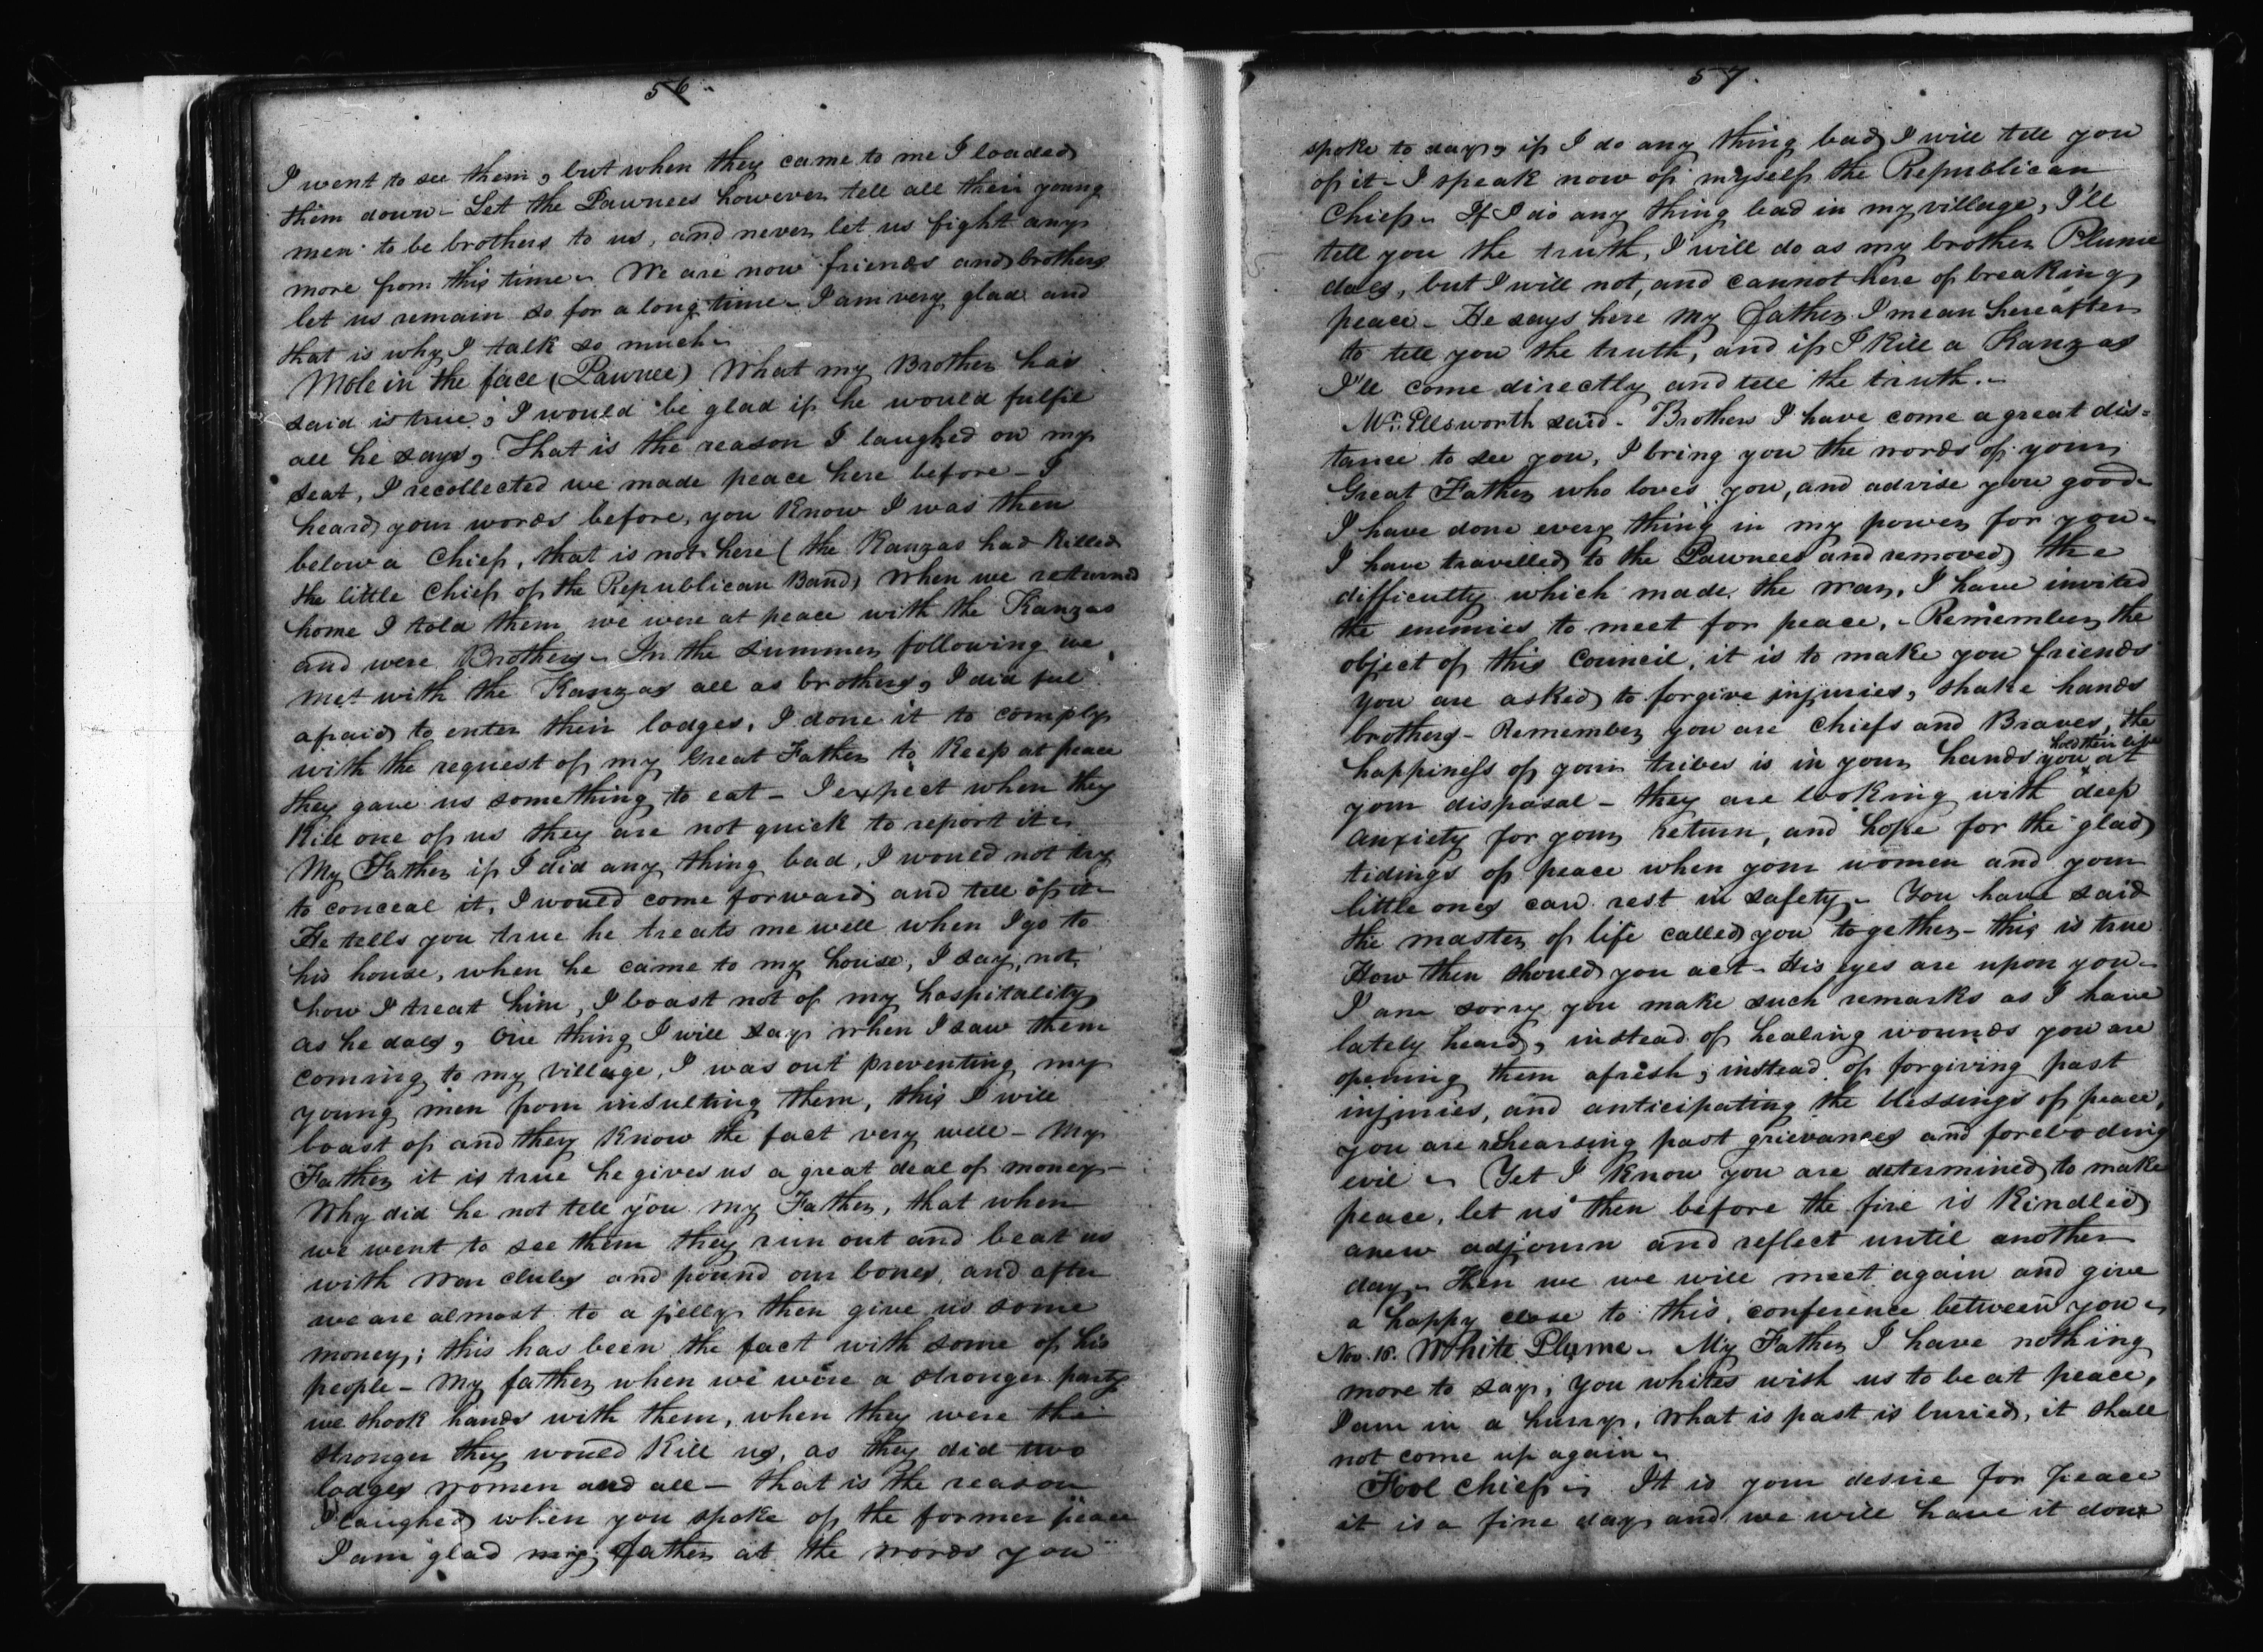 56.
I went to see them, but when they came to me I loaded
them down - Let the Pawnees however tell all their young
men to be brothers to us, and never let us fight any
more from this time - We are now friends and brothers
let us remain so for a long time - I am very glad and
that is why I talk so much -
Mole in the face (Pawnee) What my Brother has
said is true; I would be glad if he would fulfil
all he says, That is the reason I laughed on my
seat, I recollected we made peace here before - I
heard your words before, you know I was then
below a Chief, that is not here (the Kanzas had killed
the little Chief of the Republican Band) When we returned
home I told them we were at peace with the Kanzas
and were Brothers - In the summer following we
met with the Kanzas all as brothers, I did feel
afraid to enter their lodges, I done it to comply
with the request of my Great Father to keep at peace
they gave us something to eat - I expect when they
Kill one of us they are not quick to report it -
My Father if I did any thing bad, I would not try
to conceal it, I would come forward and tell of it -
He tells you true he treats me well when I go to
his house, when he came to my house, I say, not
how I treat him, I boast not of my hospitality
as he does, One thing I will say when I saw them
coming to my village, I was out preventing my
young men from insulting them, this I will
boast of and they know the fact very well - My
Father it is true he gives us a great deal of money -
Why did he not tell you my Father, that when
we went to see them they run out and beat us
with war clubs and pound our bones, and after
we are almost to a jelly then give us some
money; this has been the fact with some of his
people - My father when we were a stronger party
we shook hands with them, when they were the
stronger they would Kill us, as they did two
lodges women and all - that is the reason
I laughed when you spoke of the former peace
I am glad my father at the words you
57.
spoke to day, if I do any thing bad I will tell you
of it - I speak now of myself the Republican
Chief - If I do any thing bad in my village, I'll
tell you the truth, I will do as my brother Plume
does, but I will not, and cannot here of breaking
peace - He says here My father I mean hereafter
to tell you the truth, and if I kill a Kanzas
I'll come directly and tell the truth. -
Mr. Ellsworth said - Brothers I have come a great dis=
tance to see you, I bring you the words of your
Great Father who loves you, and advise you good -
I have done every thing in my power for you -
I have travelled to the Pawnees and removed the
difficulty which made the war, I have invited
the enemies to meet for peace, - Remember the
object of this Council, it is to make you friends
you are asked to forgive injuries, shake hands
brothers - Remember you are Chiefs and Braves, the
happiness of your tribes is in your hands you hold their life at
your disposal - they are looking with deep
anxiety for your return, and hope for the glad
tidings of peace when your women and your
little ones can rest in safety - You have said
the master of life called you together - this is true
How then should you act - His eyes are upon you -
I am sorry you make such remarks as I have
lately heard, instead of healing wounds you are
opening them afresh; instead of forgiving past
injuries, and anticipating the blessings of peace,
you are rehearsing past grievances and foreboding
evil - Yet I know you are determined to make
peace, let us then before the fire is kindled
anew adjourn and reflect until another
day - Then we we will meet again and give
a happy close to this conference between you -
Nov. 18. White Plume - My Father I have nothing
more to say; you whites wish us to be at peace,
I am in a hurry, What is past is buried, it shall
not come up again -
Fool Chief - It is your desire for peace
it is a fine day and we will have it done